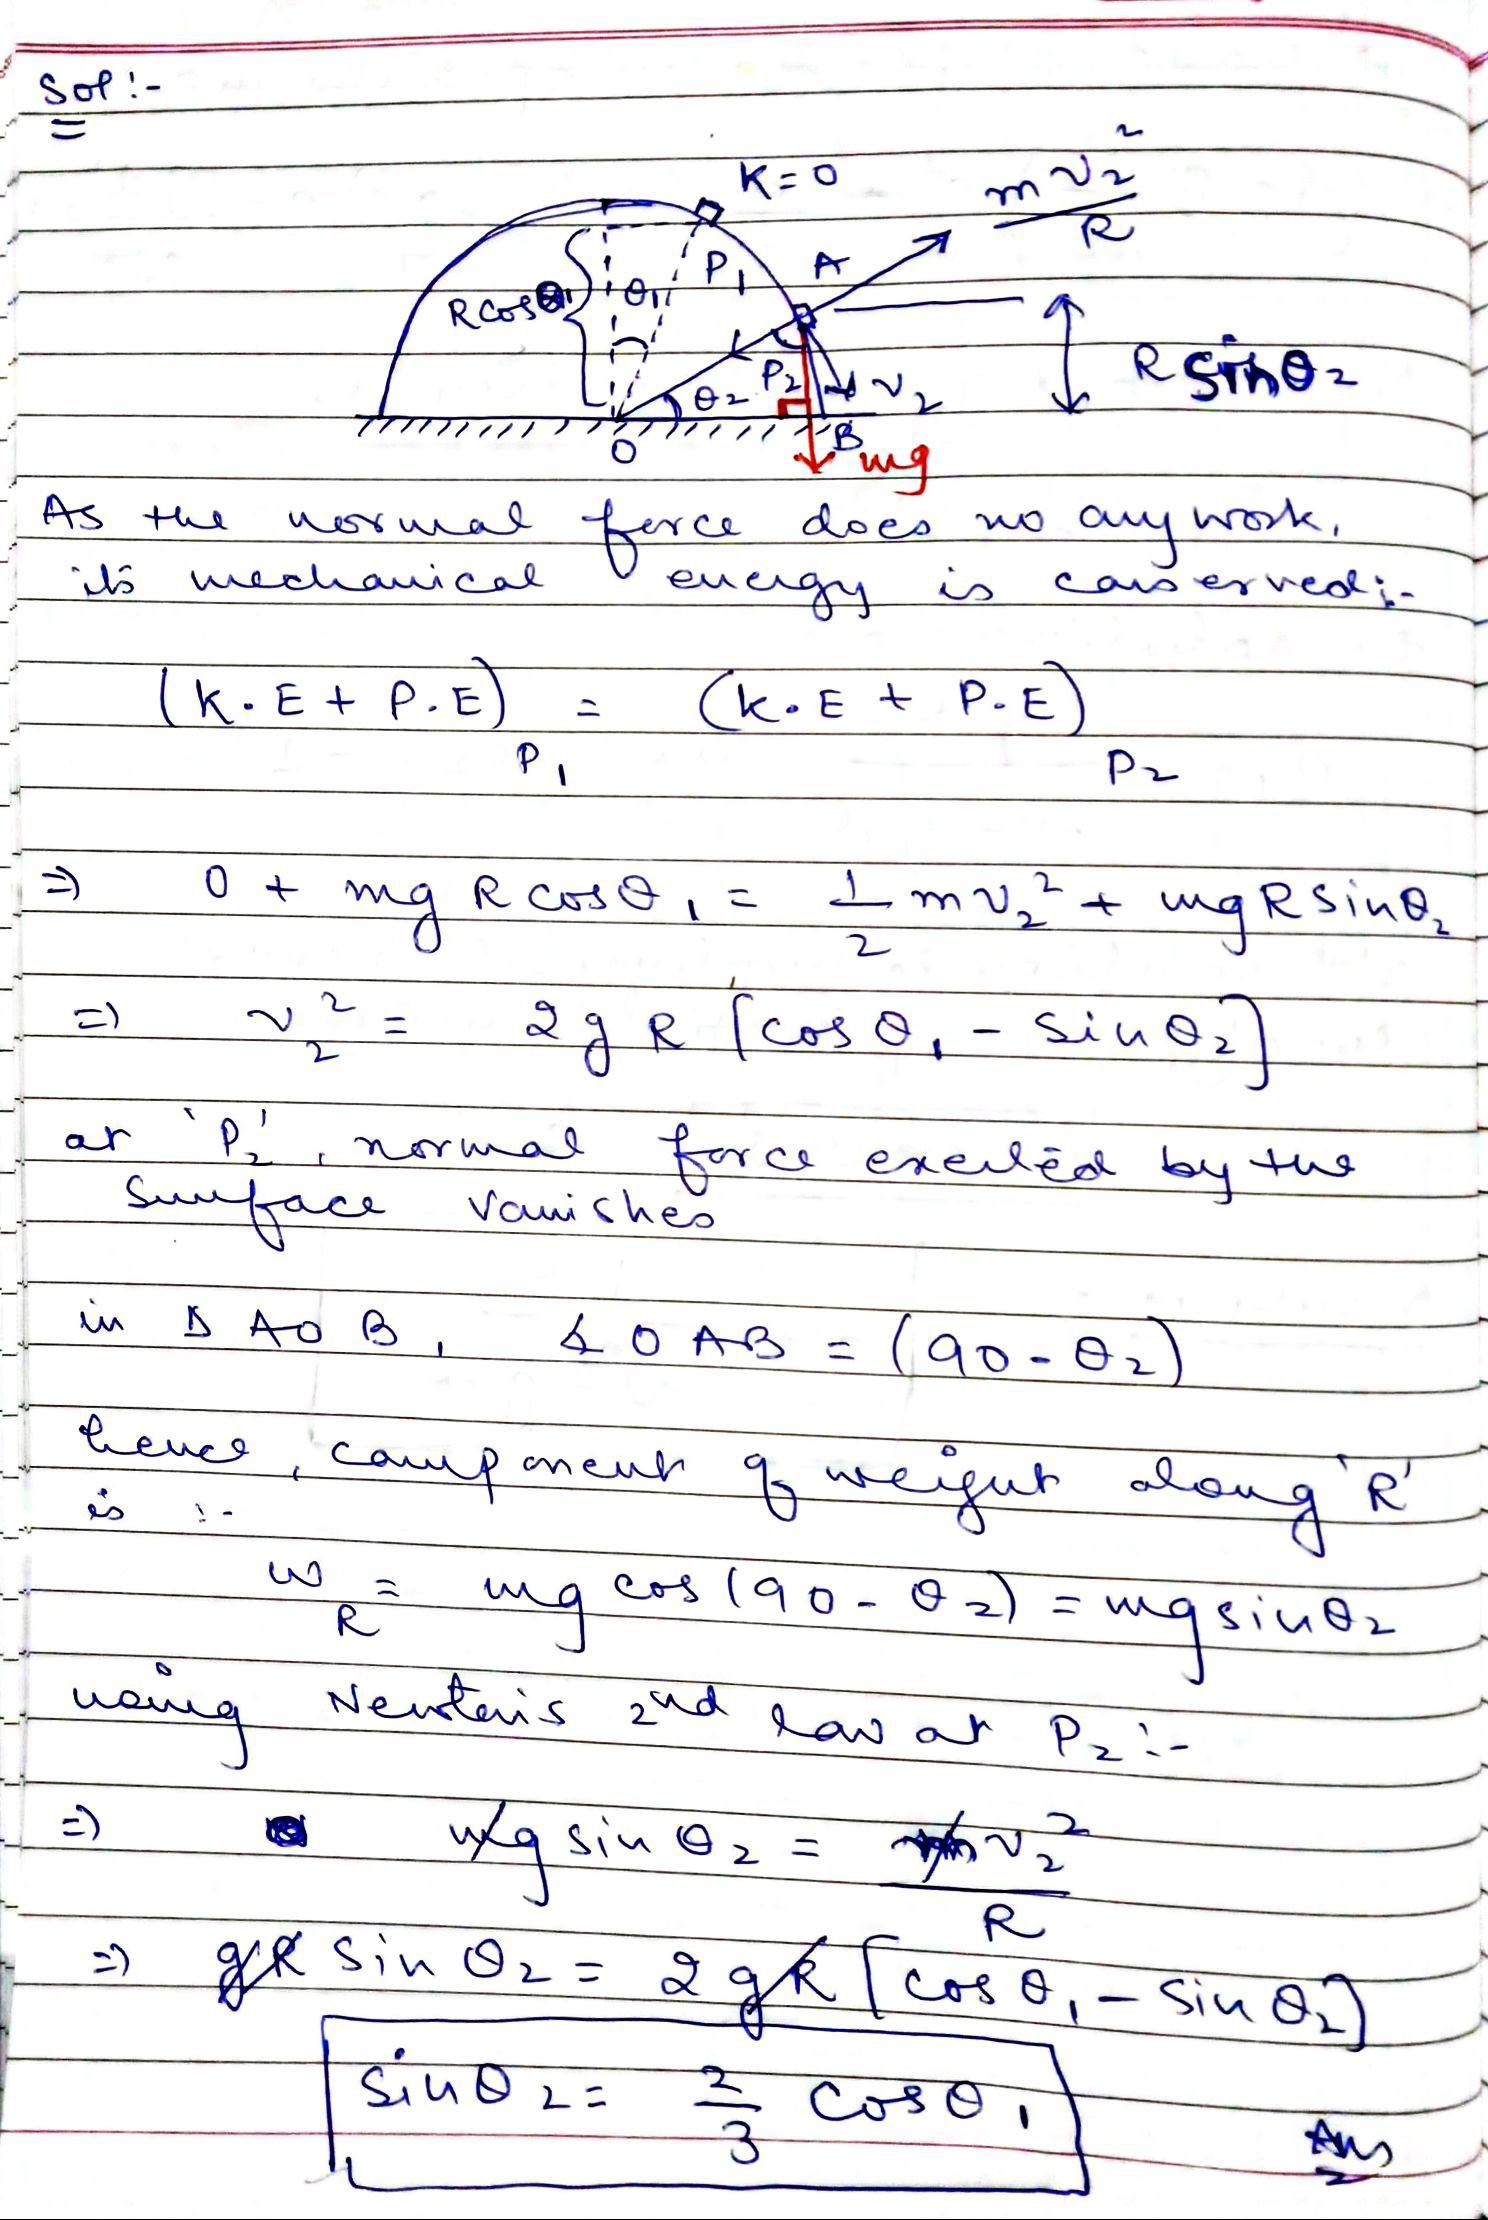 Sol :-
K = 0
m v₂²
R
R cos θ₁
θ₁
P₁
A
P₂
θ₂
v₂
R sin θ₂
O
B
mg
As the normal force does no any work,
its mechanical energy is conserved :-
(K.E + P.E) = (K.E + P.E)
P₁ P₂
⇒ 0 + mg R cos θ₁ = 1/2 m v₂² + mg R sin θ₂
⇒ v₂² = 2 g R [cos θ₁ - sin θ₂]
at 'P₂', normal force exerted by the
surface vanishes
in Δ AOB, ∠OAB = (90 - θ₂)
hence, component of weight along 'R'
is :-
W_R = mg cos (90 - θ₂) = mg sin θ₂
using Newton's 2nd law at P₂ :-
⇒ mg sin θ₂ = m v₂² / R
⇒ gR sin θ₂ = 2 gR [cos θ₁ - sin θ₂]
sin θ₂ = 2/3 cos θ₁
Ans